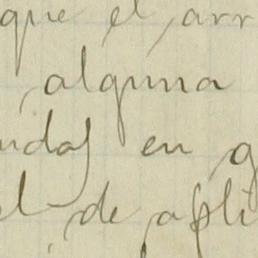 que el arr
alguna
ndas en g
el de apli